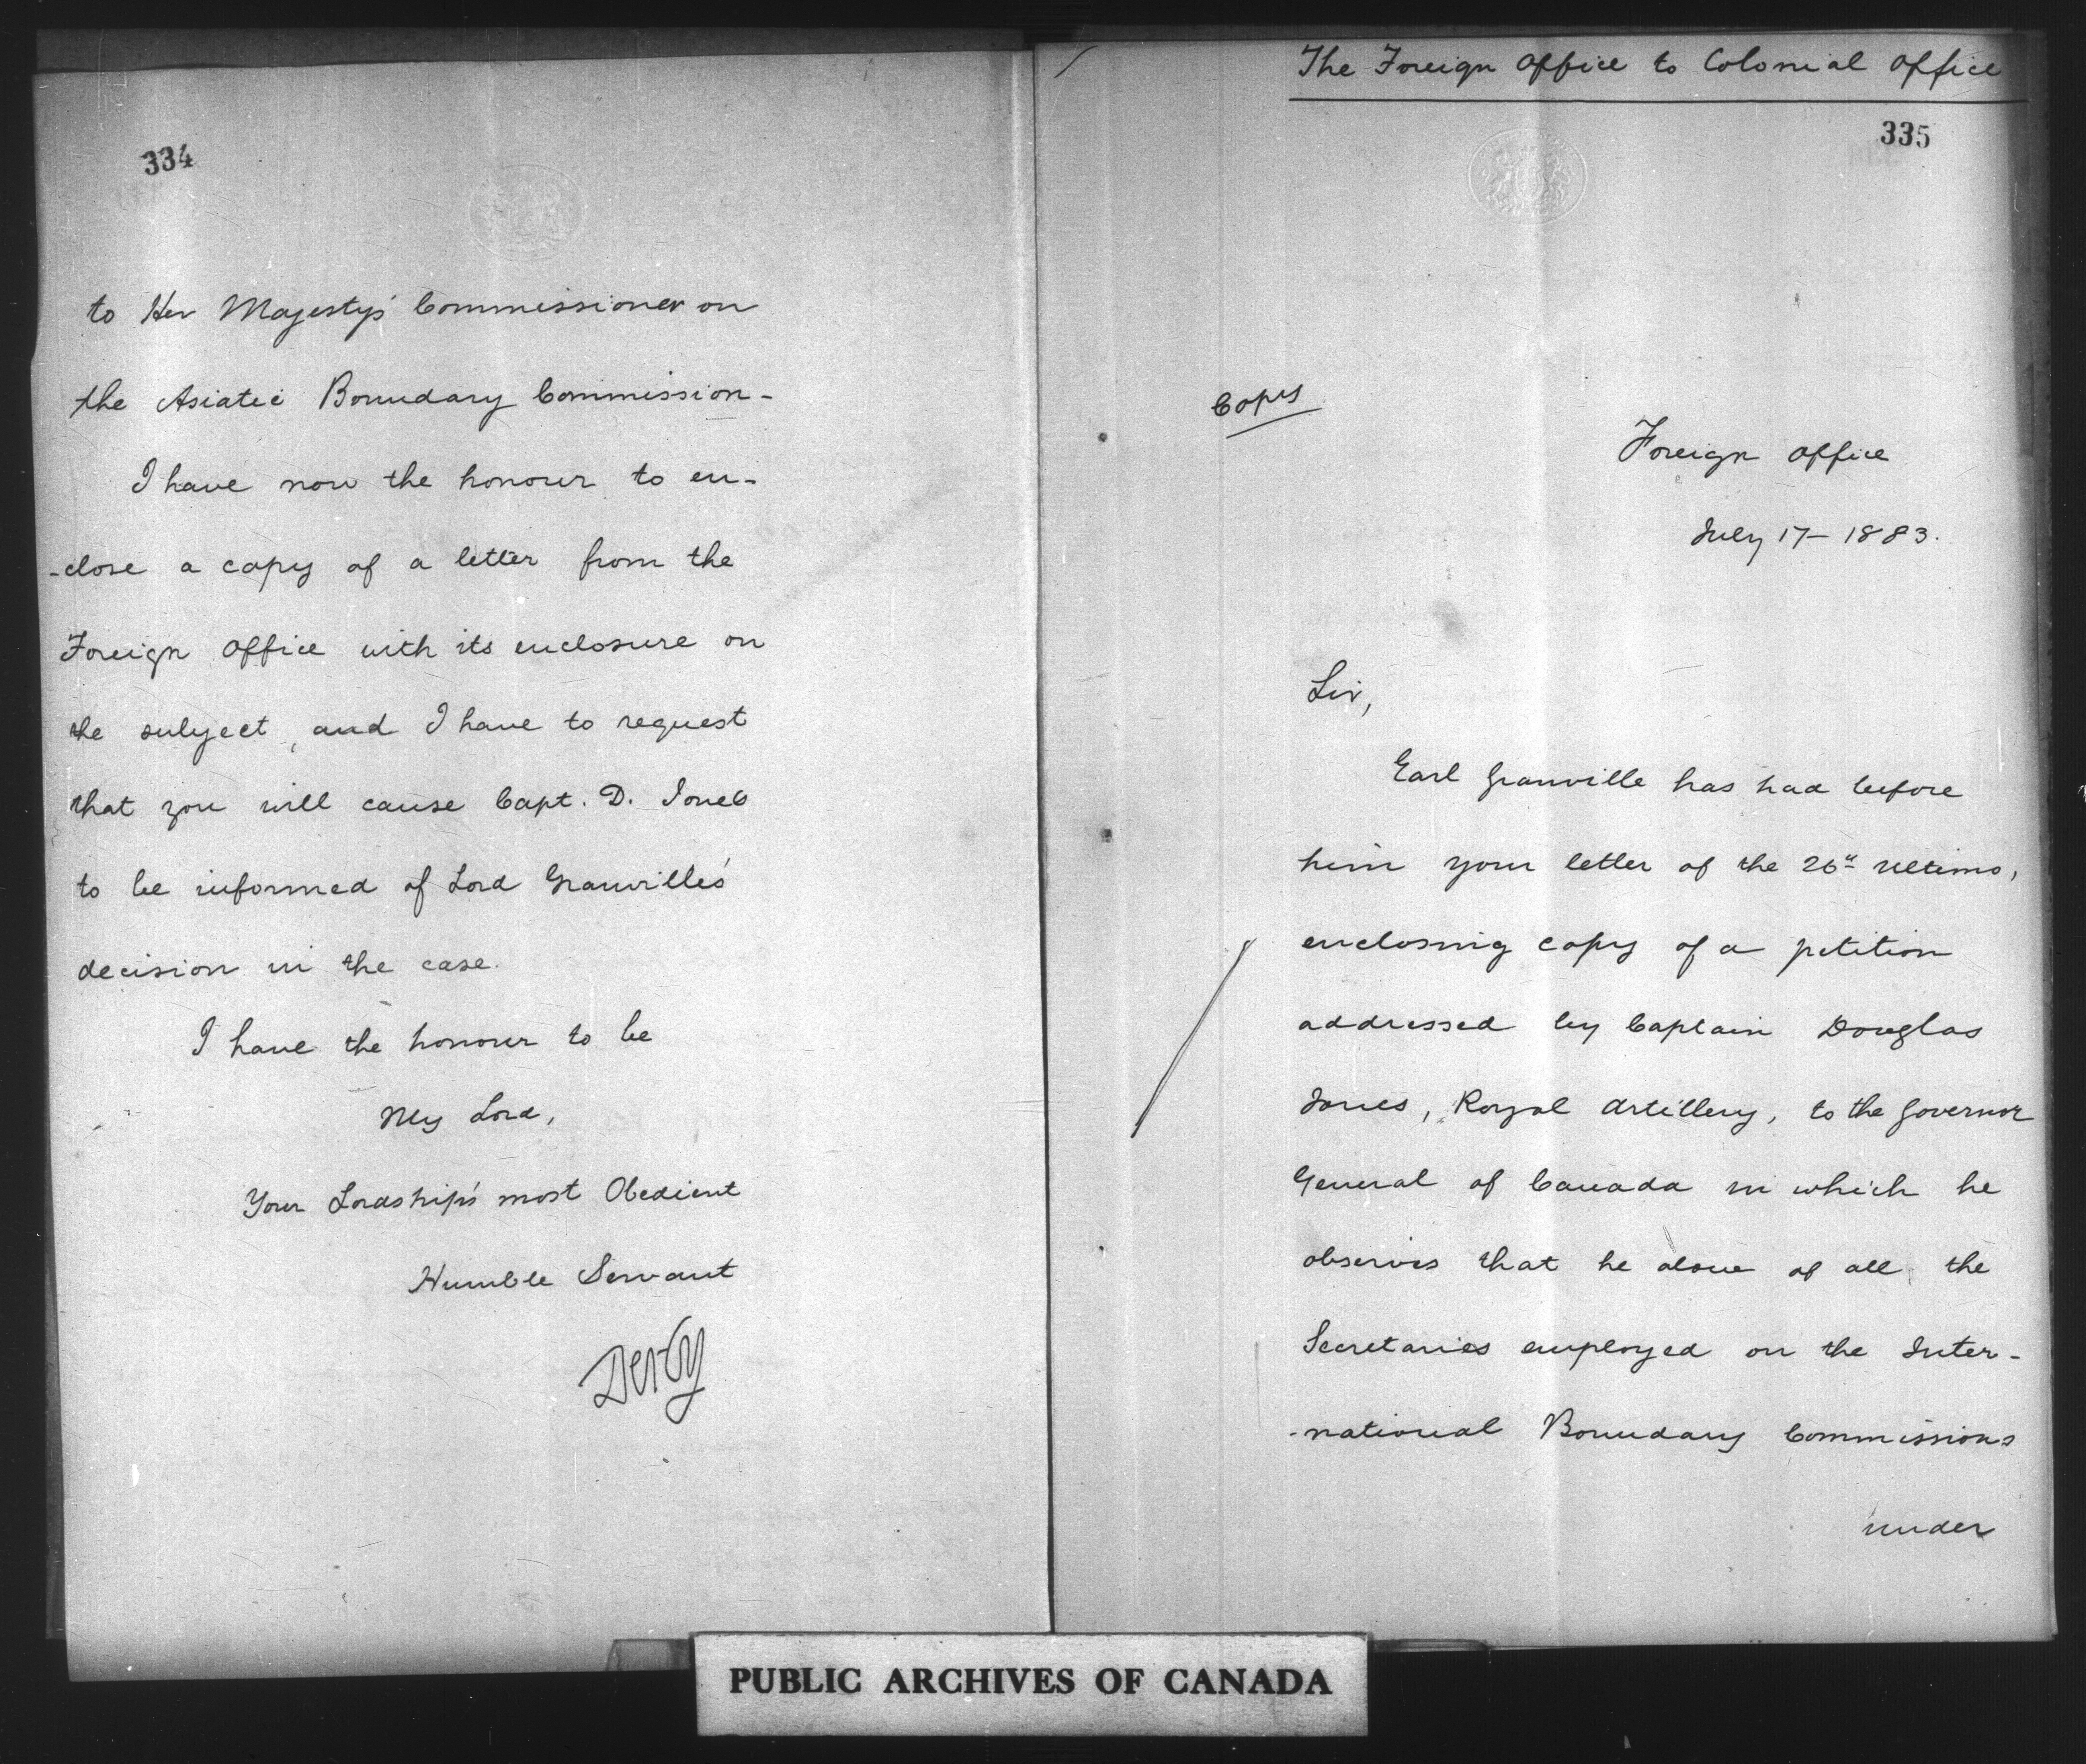 334
to Her Majesty's Commissioner on
the Asiatic Boundary Commission-
I have now the honour to en-
-close a copy of a letter from the
Foreign Office with its enclosure on
the subject, and I have to request
that you will cause Capt. D. Jones
to be informed of Lord Granville's
decision in the case.
I have the honour to be
My Lord,
Your Lordship's most Obedient
Humble Servant
Derby
The Foreign Office to Colonial Office
335
Copy
Foreign Office
July 17- 1883.
Sir,
Earl Granville has had before
him your letter of the 26th ultimo,
enclosing copy of a petition
addressed by Captain Douglas
Jones, Royal Artillery, to the Governor
General of Canada in which he
observes that he alone of all the
Secretaries employed on the Inter-
-national Boundary Commissions
under
PUBLIC ARCHIVES OF CANADA